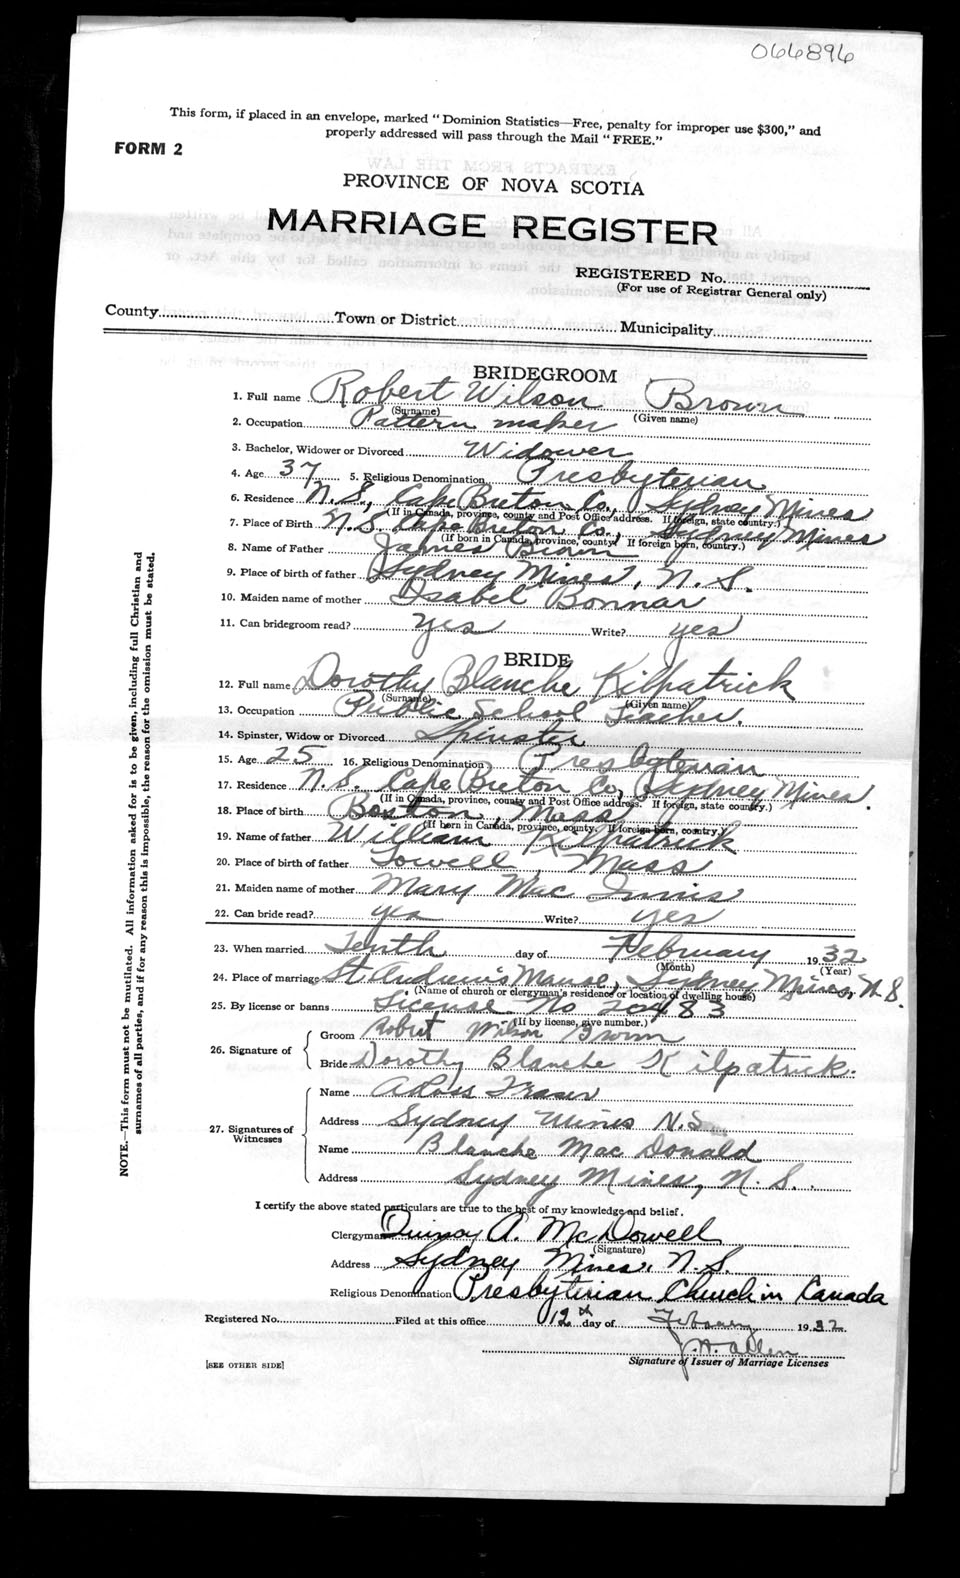 066896
This form, if placed in an envelope, marked " Dominion Statistics—Free, penalty for improper use $300," and
properly addressed will pass through the Mail " FREE."
FORM 2
PROVINCE OF NOVA SCOTIA
MARRIAGE REGISTER
REGISTERED No.
(For use of Registrar General only)
County Town or District Municipality
BRIDEGROOM
1. Full name Robert Wilson Brown
(Surname) (Given name)
2. Occupation Pattern maker
3. Bachelor, Widower or Divorced Widower
4. Age 37 5. Religious Denomination Presbyterian
6. Residence N.S., Cape Breton Co., Sydney Mines
(If in Canada, province, county and Post Office address. If foreign, state country.)
7. Place of Birth N.S. Cape Breton Co., Sydney Mines
(If born in Canada, province, county. If foreign born, country.)
8. Name of Father James Brown
9. Place of birth of father Sydney Mines, N.S.
10. Maiden name of mother Isabel Bonnar
11. Can bridegroom read? yes Write? yes
BRIDE
12. Full name Dorothy Blanche Kilpatrick
(Surname) (Given name)
13. Occupation Public School Teacher.
14. Spinster, Widow or Divorced Spinster
15. Age 25 16. Religious Denomination Presbyterian
17. Residence N.S. Cape Breton Co, Sydney Mines.
(If in Canada, province, county and Post Office address. If foreign, state country.)
18. Place of birth Boston, Mass
(If born in Canada, province, county. If foreign born, country.)
19. Name of father William Kilpatrick
20. Place of birth of father Lowell Mass
21. Maiden name of mother Mary Mac Innis
22. Can bride read? yes Write? yes
23. When married Tenth day of February 1932
(Month) (Year)
24. Place of marriage St. Andrew's Manse, Sydney Mines, N.S.
(Name of church or clergyman's residence or location of dwelling house)
25. By license or banns License No 20483
(If by license, give number.)
26. Signature of
Groom Robert Wilson Brown
Bride Dorothy Blanche Kilpatrick.
27. Signatures of Witnesses
Name A Ross Fraser
Address Sydney Mines N.S
Name Blanche Mac Donald
Address Sydney Mines, N.S.
I certify the above stated particulars are true to the best of my knowledge and belief.
Clergyman Quincy A. McDowell
(Signature)
Address Sydney Mines, N.S.
Religious Denomination Presbyterian Church in Canada
Registered No. Filed at this office 12th day of February 1932
J.H. Allen
Signature of Issuer of Marriage Licenses
[SEE OTHER SIDE]
NOTE.—This form must not be mutilated. All information asked for is to be given, including full Christian and
surnames of all parties, and if for any reason this is impossible, the reason for the omission must be stated.